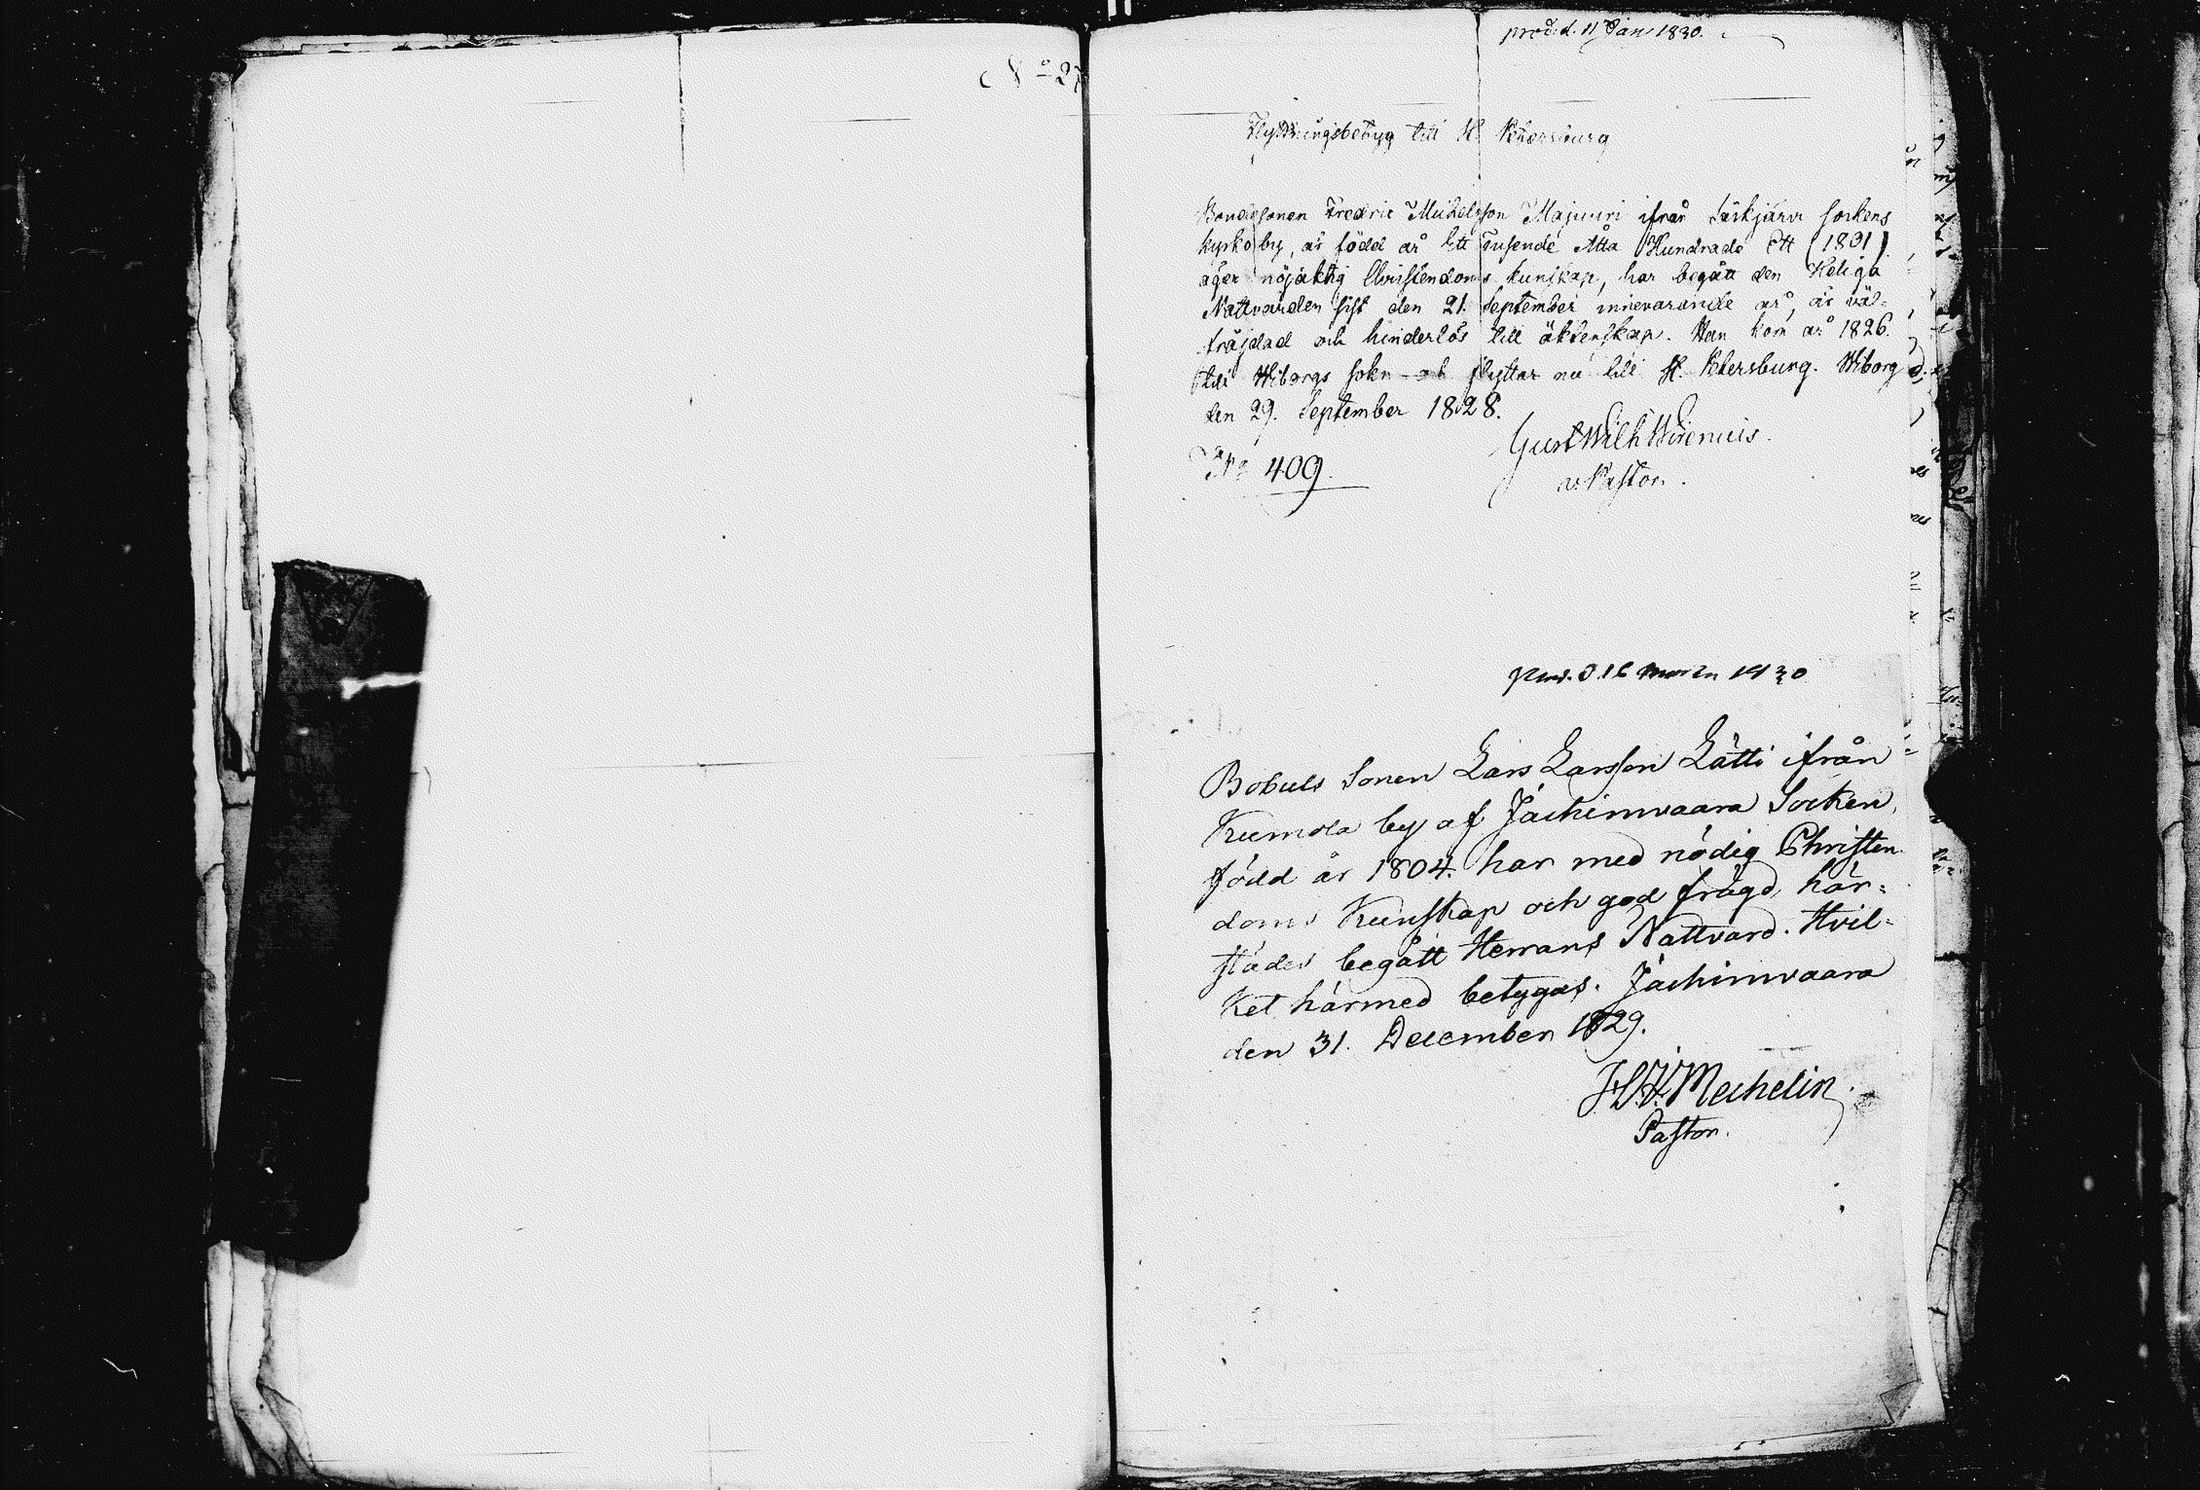 No 27
prod. d. 11 Jan 1830.
Flyttningsbetyg till St Petersburg
Bondesonen Fredric Michelsson Majuuri ifrån Säskjärvi sockens
kyrkoby, är född år Ett Tusende Åtta Hundrade Ett (1801)
äger nöjaktig Christendoms kunskap, har begått den Heliga
Nattvarden sist den 21. September innevarande år, är väl-
fräjdad och hinderlös till äktenskap. Han kom år 1826.
till Wiborgs sokn och flyttar nu till St. Petersburg. Wiborg
den 29. September 1828.
Gust Wilh Wirenius.
No 409.
v. Pastor.
prod. d. 16 Martii 1830
Bobuls Sonen Lars Larsson Lätti ifrån
Kumola by af Jachimvaara Socken,
född år 1804. har med nödig Christen
doms Kunskap och god frägd, här-
städes begått Herrans Nattvard. Hvil-
ket härmed betygas. Jachimvaara
den 31. December 1829.
Mechelin
Pastor.